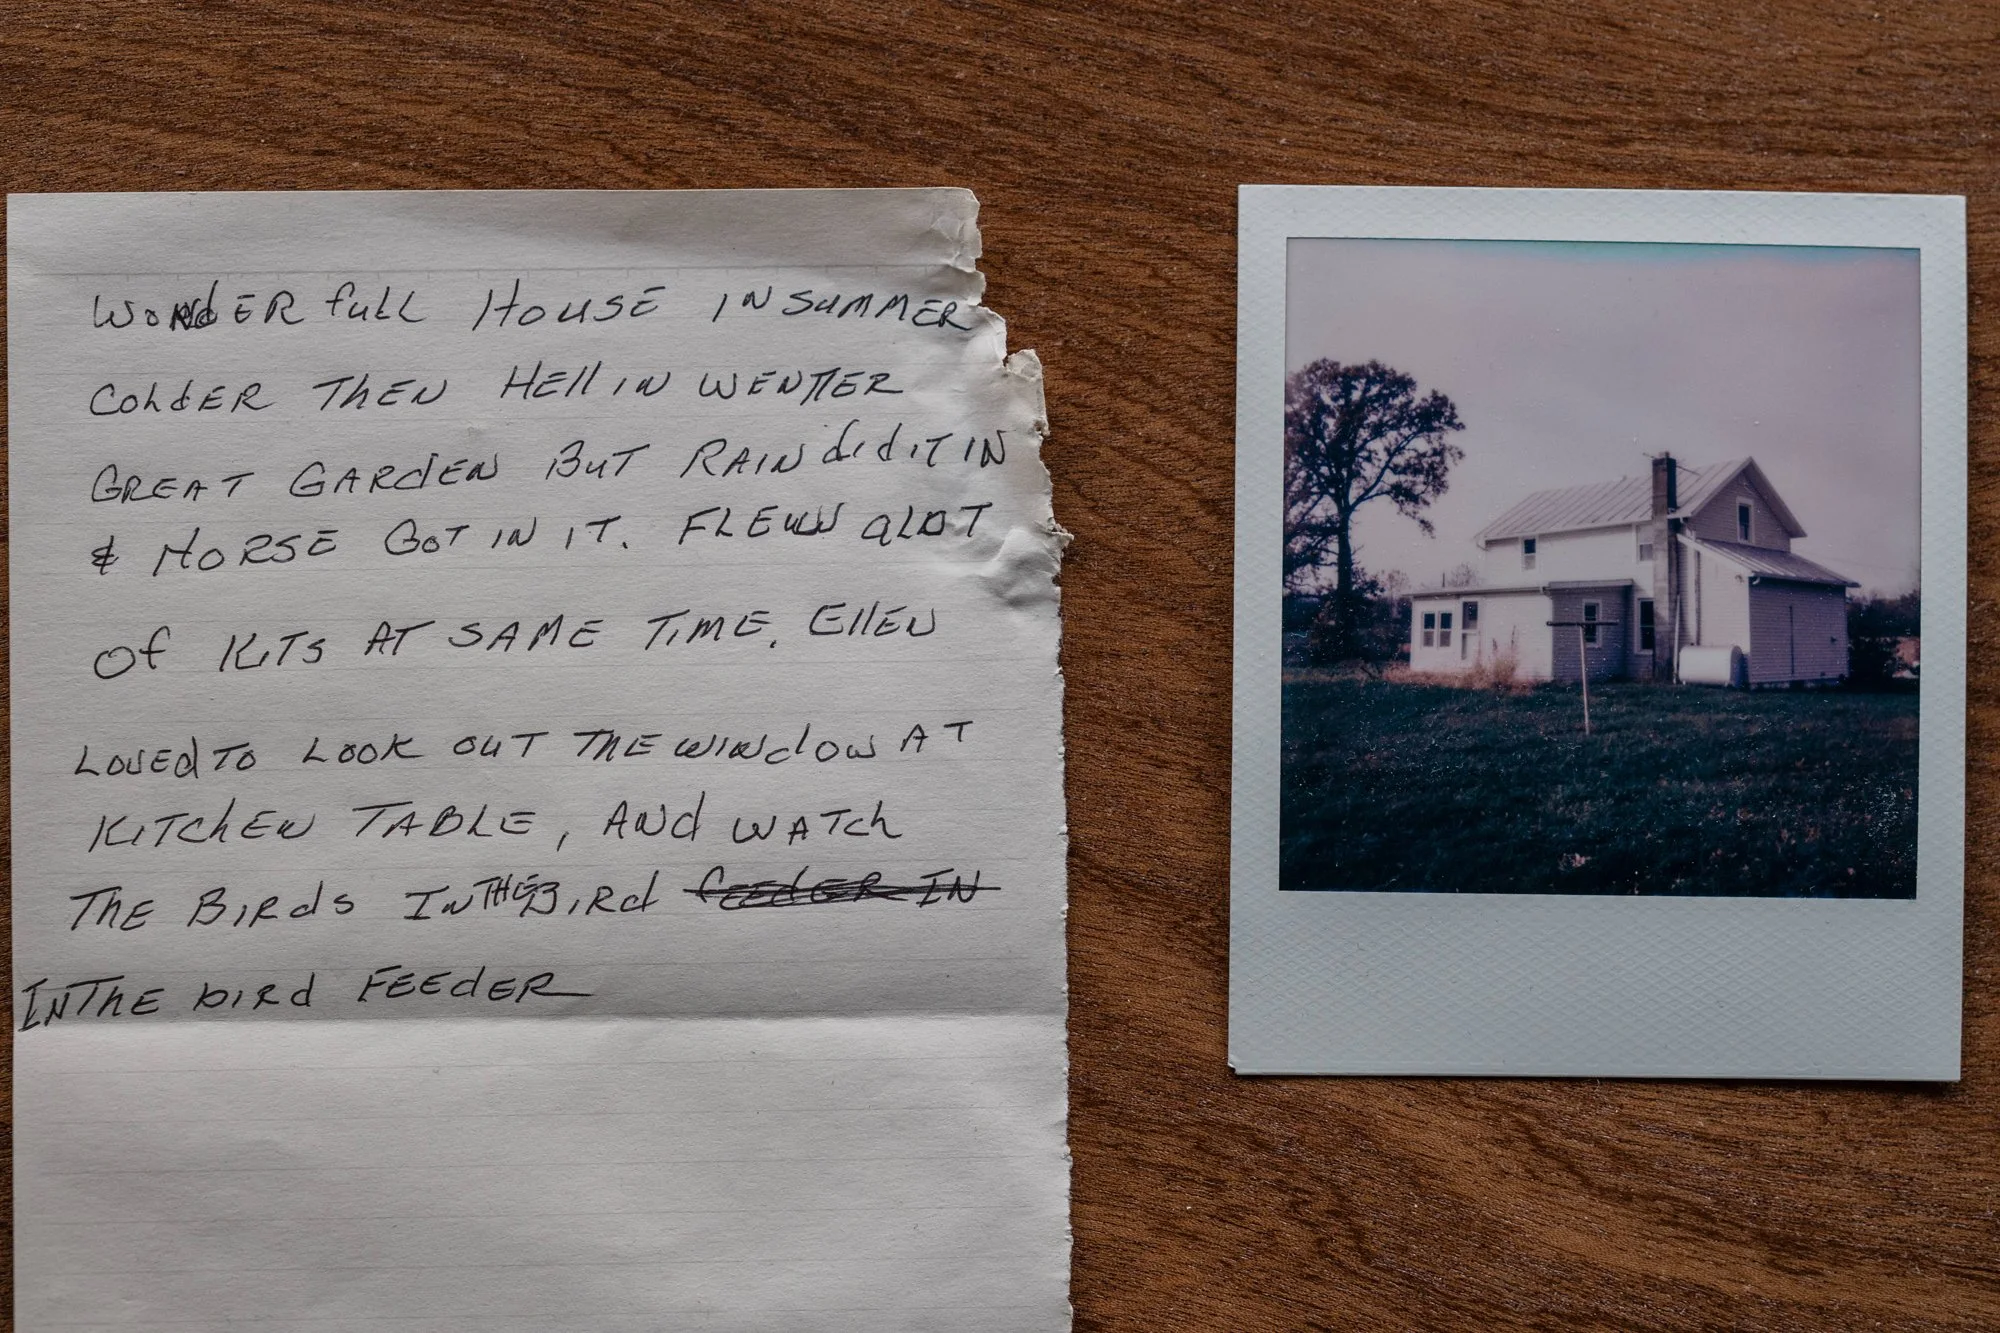 WONDERfull HOUSE IN SUMMER
COLdER THEN HEll IN WENTTER
GREAT GARdEN BUT RAIN did IT IN
& HORSE GOT IN IT. FLEWW A LOT
Of KITS AT SAME TIME. EllEN
LOVEd TO LOOK OUT THE WINdOW AT
KITchEN TABLE, ANd WATch
THE BIRds IN THE BIRd feedER IN
IN THE bIRd FEEdER